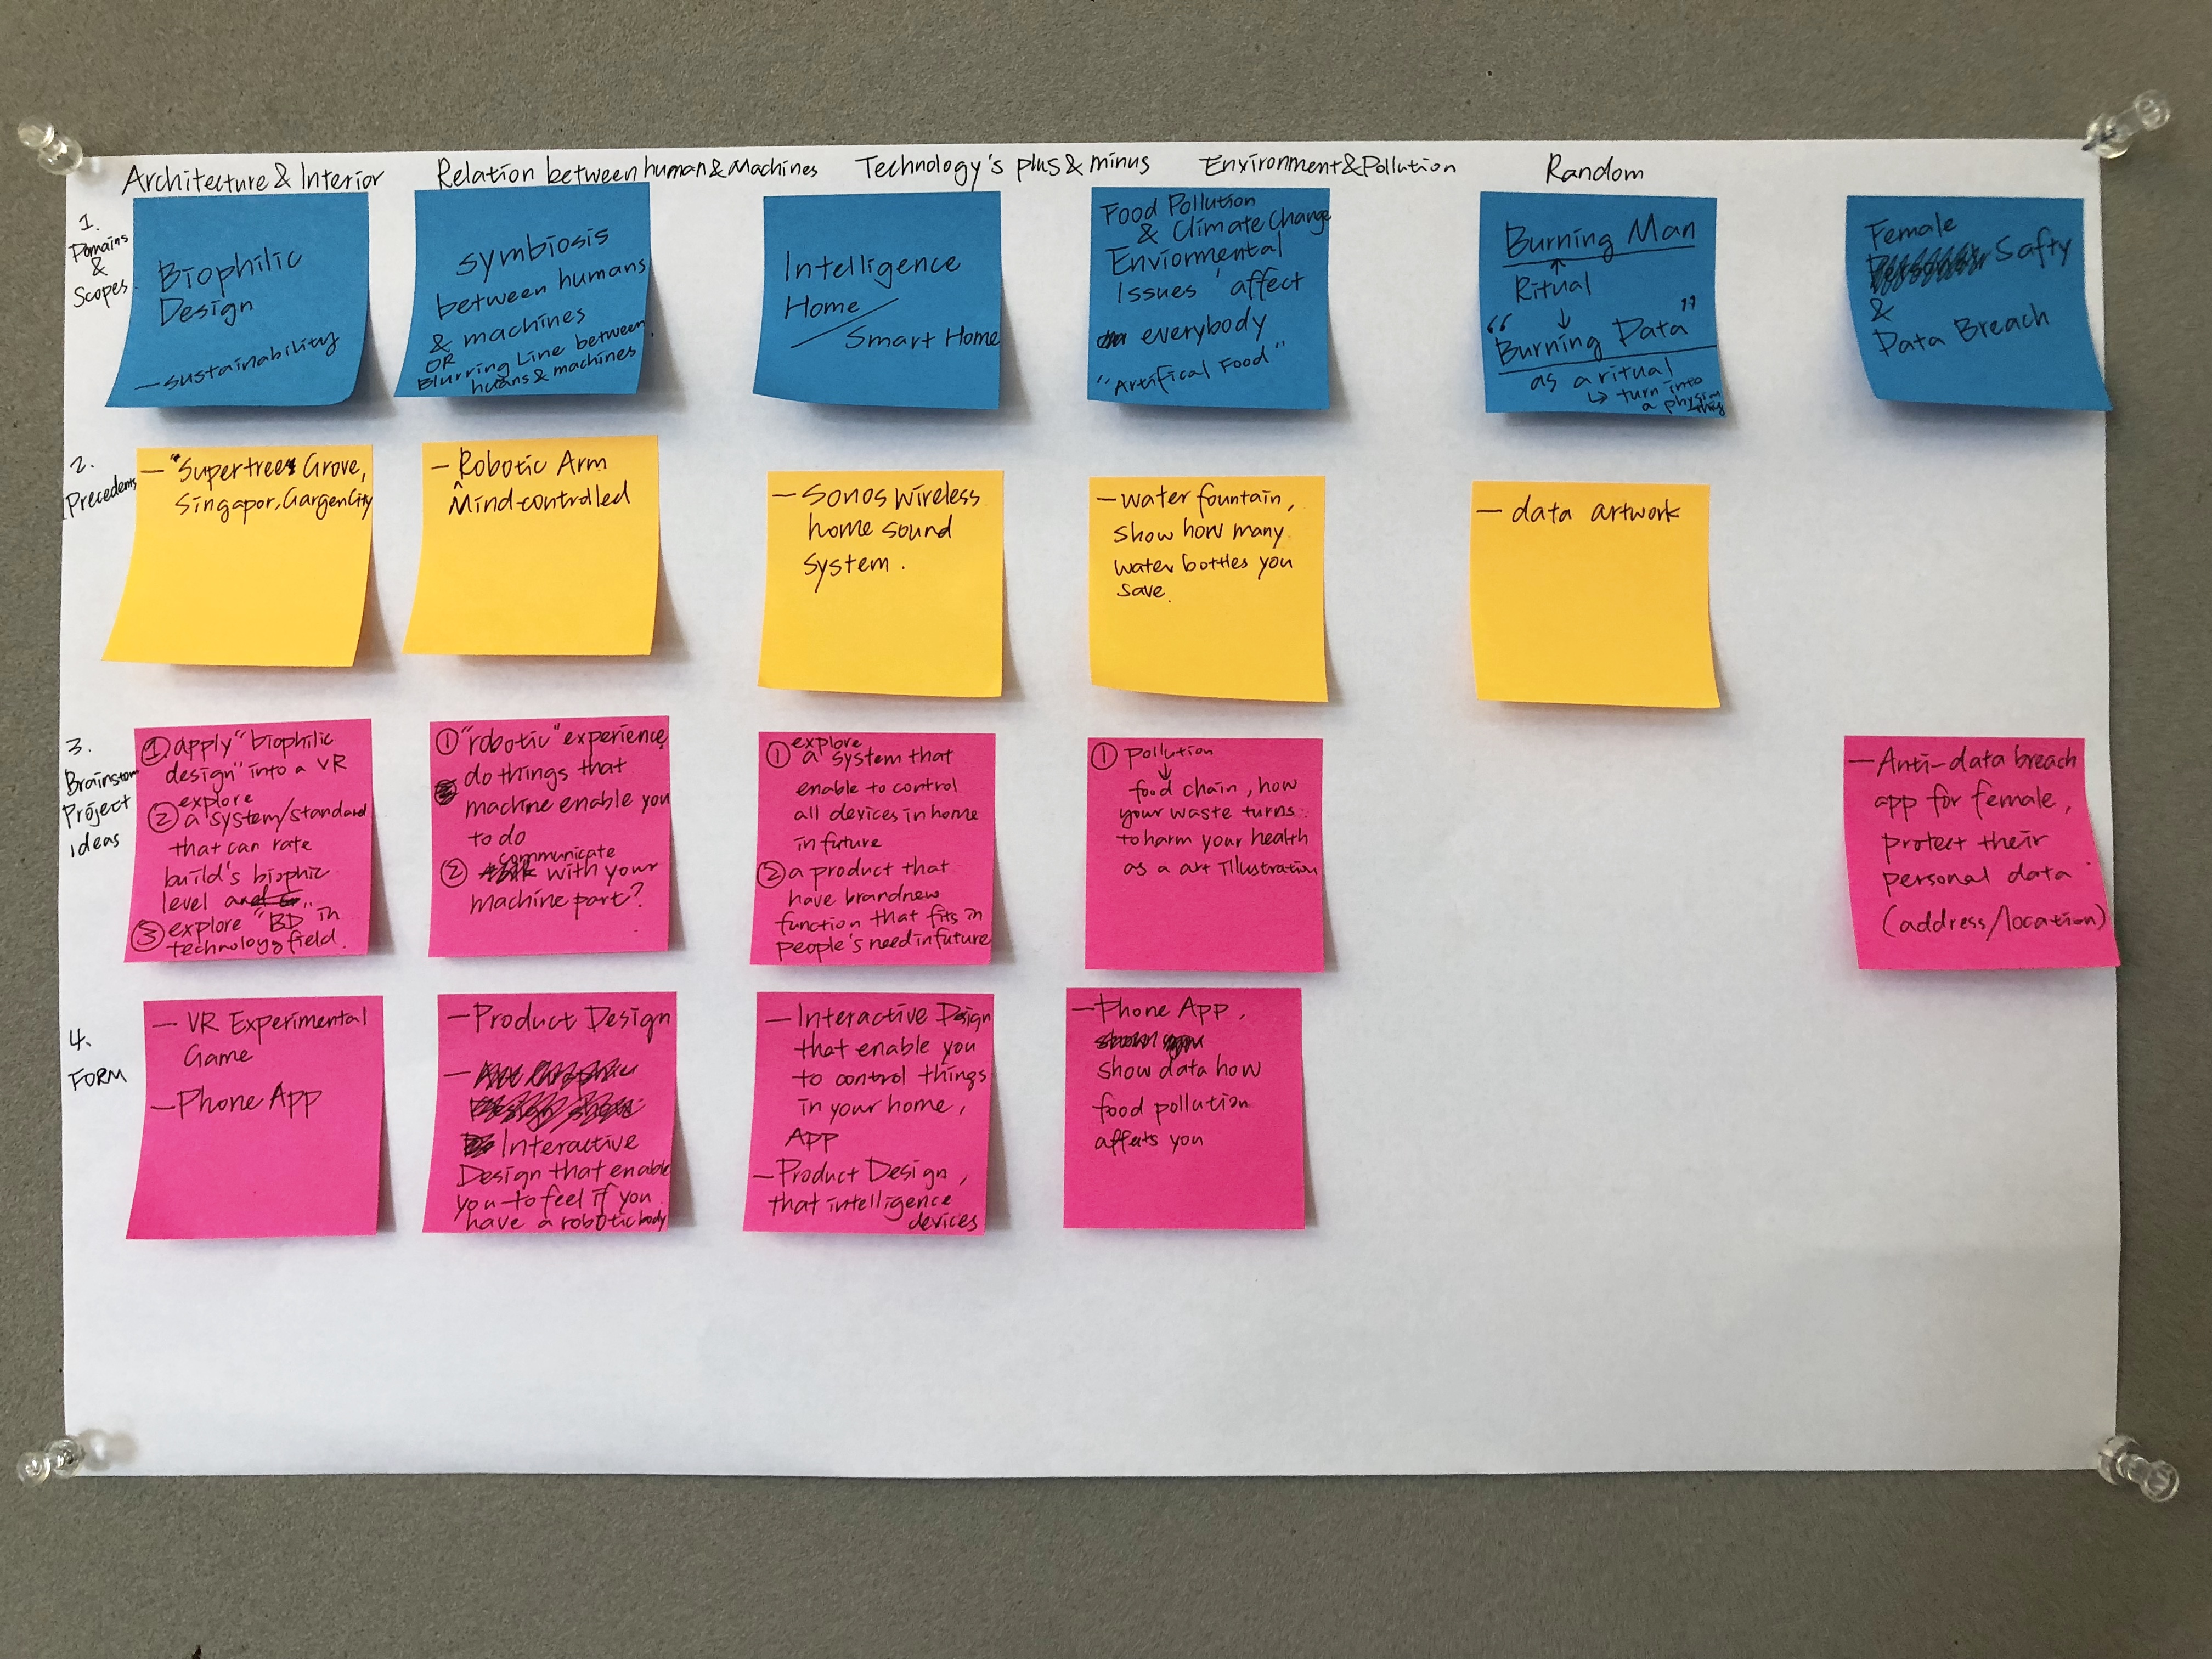 Architecture & Interior
Relation between human & Machines
Technology's plus & minus
Environment & Pollution
Random
1.
Domains
&
Scopes.
Biophilic
Design
— sustainability
symbiosis
between humans
& machines
OR
Blurring Line between
humans & machines.
Intelligence
Home /
Smart Home
Food Pollution
& Climate Change
Enviormental
Issues' affect
everybody
"Artifical Food"
Burning Man
Ritual
"Burning Data"
as a ritual
↳ turn into
a physical
thing
Female
Safty
&
Data Breach
2.
Precedents
— "Supertrees Grove,
Singapor, GargenCity
— Robotic Arm
Mind-controlled
— Sonos wireless
home sound
system.
— water fountain,
show how many
water bottles you
save.
— data artwork
3.
Brainstorm
Project
ideas
① apply "biophilic
design" into a VR
② explore
a system/standard
that can rate
build's biophic
level
③ explore "BD" in
technology field.
① "robotic" experience
do things that
machine enable you
to do
② communicate
with your
machine part?
① explore
a system that
enable to control
all devices in home
in future
② a product that
have brandnew
function that fits in
people's need in future
① pollution
↓
food chain, how
your waste turns
to harm your health
as a art illustration
— Anti-data breach
app for female,
protect their
personal data
(address/location)
4.
FORM
— VR Experimental
Game
— Phone App
— Product Design
—
Interactive
Design that enable
you to feel if you
have a robotic body
— Interactive Design
that enable you
to control things
in your home,
App
— Product Design,
that intelligence
devices
— Phone App,
show data how
food pollution
affects you